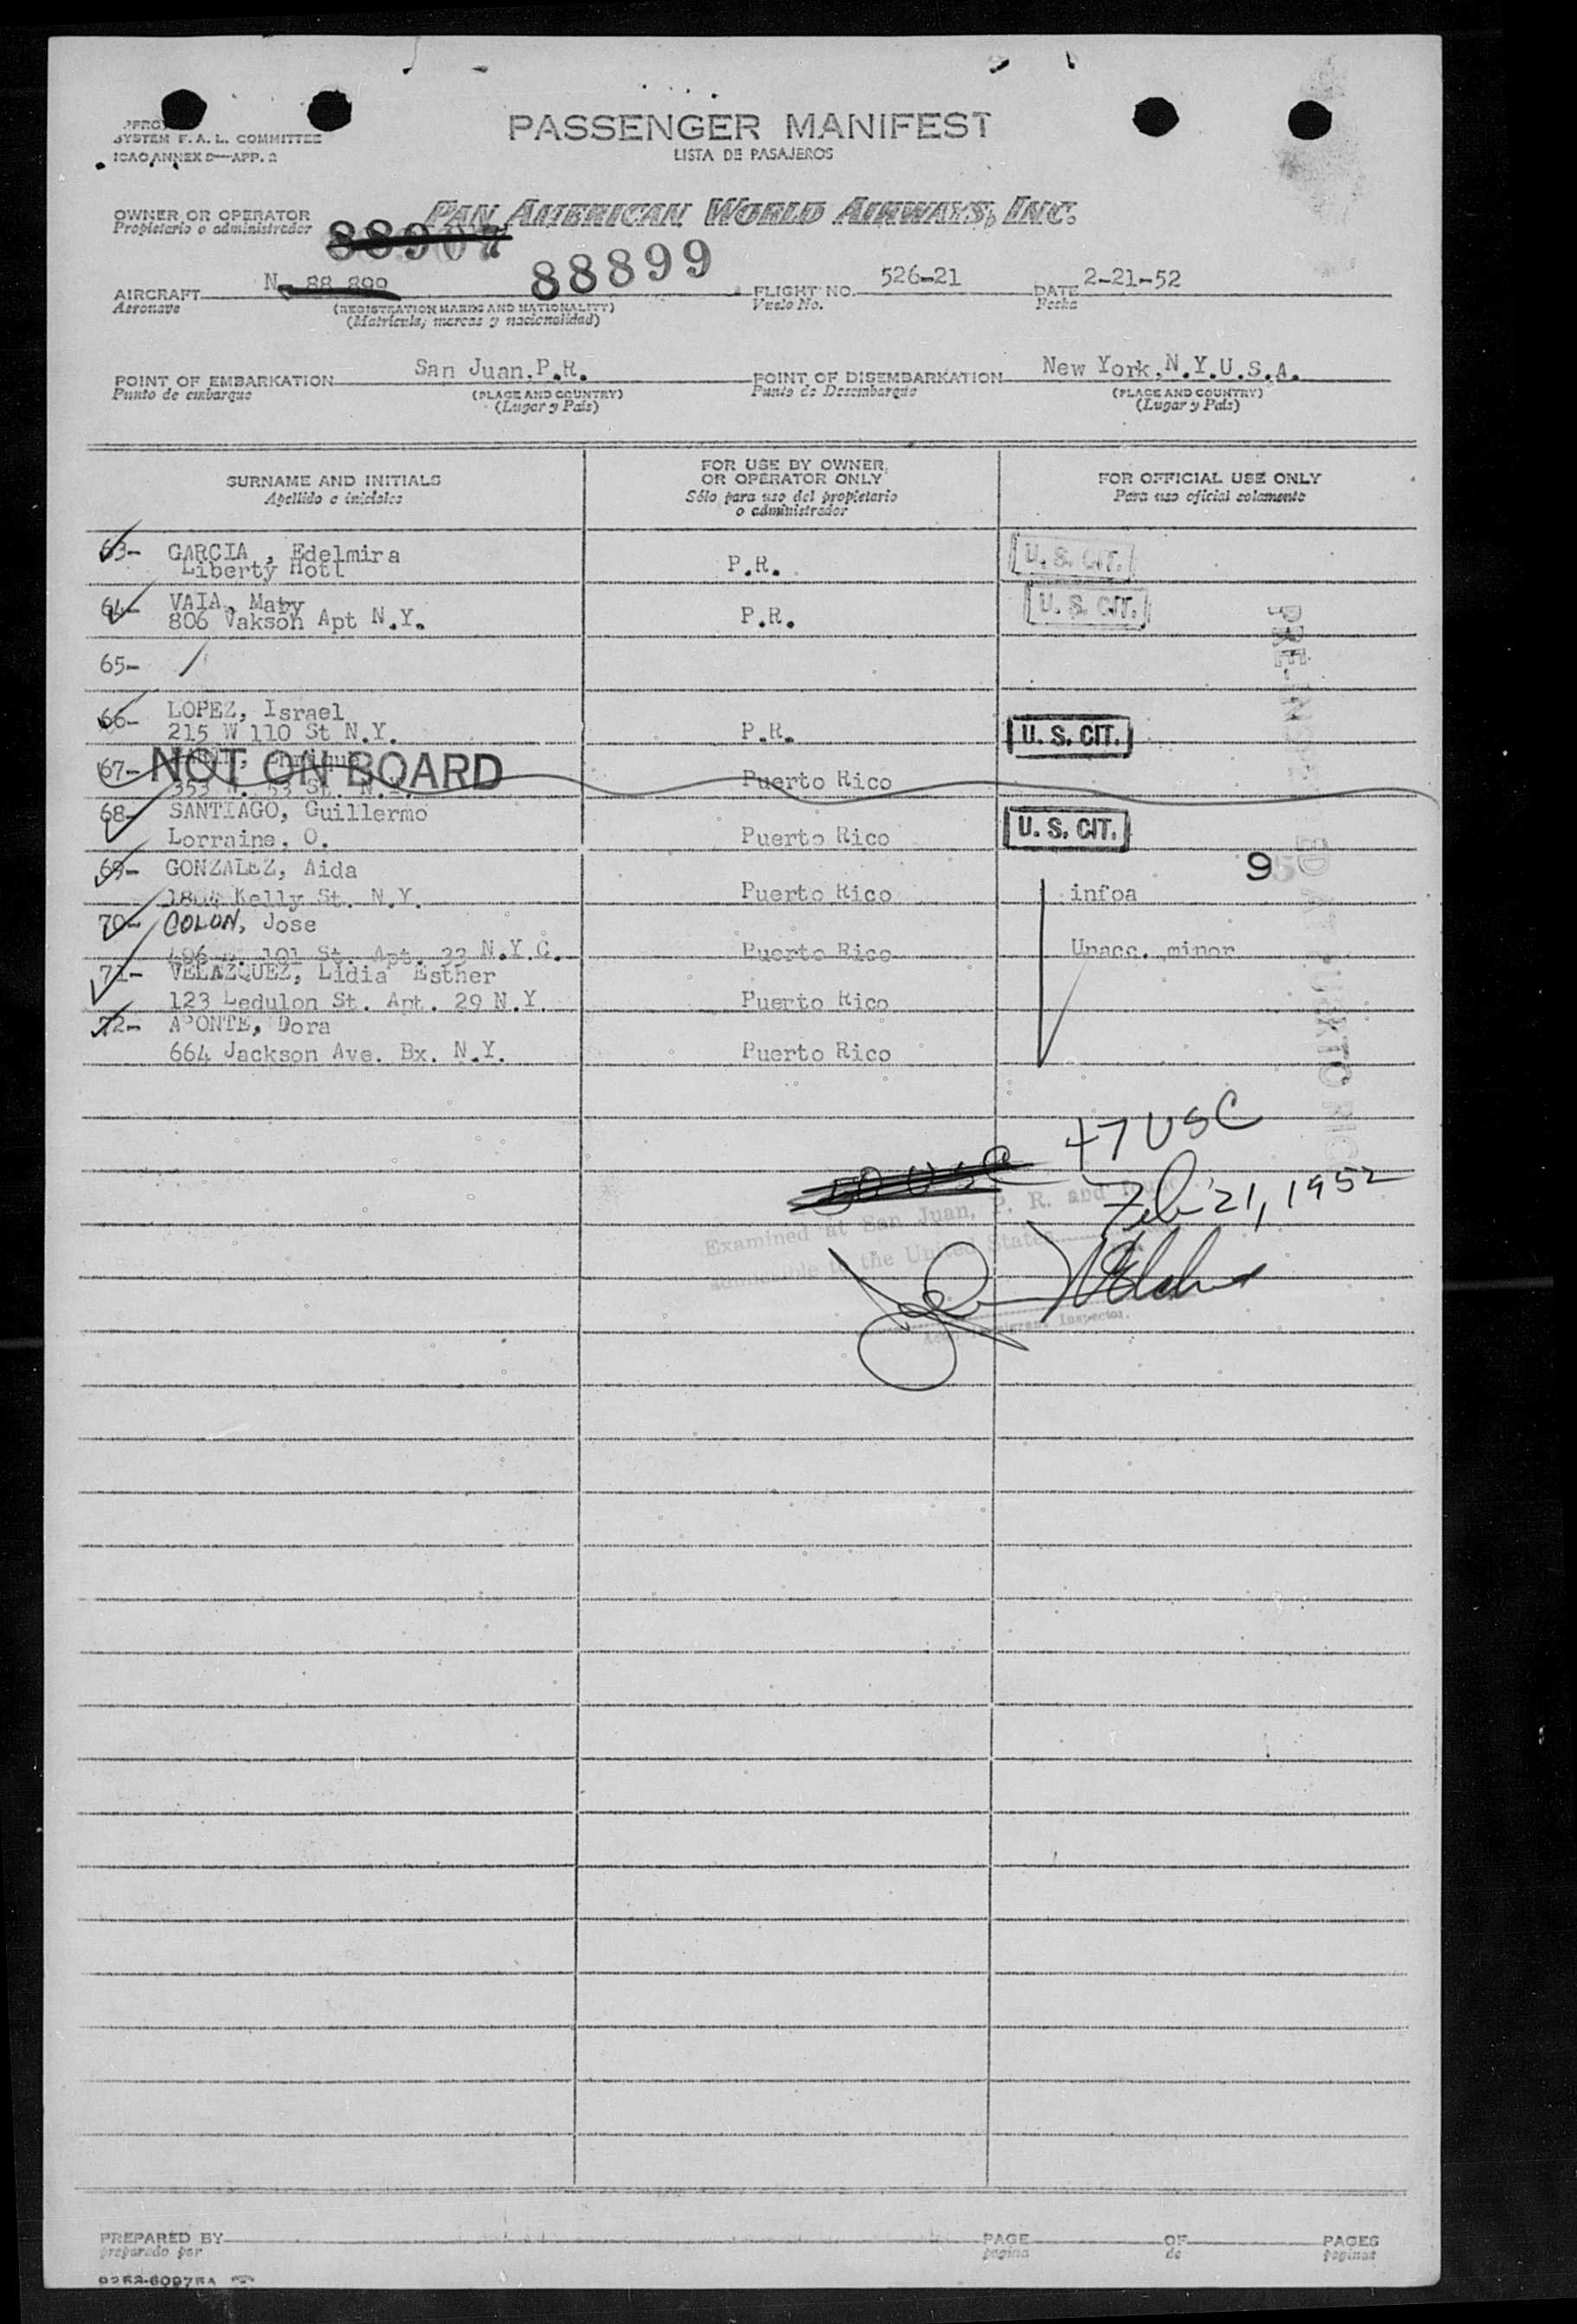 SYSTEM F. A. L. COMMITTEE
ICAO ANNEX 9—APP. 2
PASSENGER MANIFEST
LISTA DE PASAJEROS
OWNER OR OPERATOR
Propietario o administrador
PAN AMERICAN WORLD AIRWAYS, INC.
88907
AIRCRAFT N- 88 899 88899 FLIGHT NO. 526-21 DATE 2-21-52
Aeronave (REGISTRATION MARKS AND NATIONALITY) Vuelo No. Fecha
(Matrícula, marcas y nacionalidad)
POINT OF EMBARKATION San Juan, P.R. POINT OF DISEMBARKATION New York, N.Y.U.S.A.
Punto de embarque (PLACE AND COUNTRY) Punto de Desembarque (PLACE AND COUNTRY)
(Lugar y País) (Lugar y País)
SURNAME AND INITIALS FOR USE BY OWNER OR OPERATOR ONLY FOR OFFICIAL USE ONLY
Apellido e iniciales Sólo para uso del propietario o administrador Para uso oficial solamente
63- GARCIA , Edelmira
Liberty Hotl P.R. U. S. CIT.
64- VAIA, Mary
806 Vakson Apt N.Y. P.R. U. S. CIT.
65-
66- LOPEZ, Israel
215 W 110 St N.Y. P.R. U. S. CIT.
67- NOT ON BOARD Enrique
353 53 St. N.Y. Puerto Rico
68- SANTIAGO, Guillermo
Lorraine, O. Puerto Rico U. S. CIT.
9
69- GONZALEZ, Aida
Kelly St. N.Y. Puerto Rico infoa
70- COLON, Jose
101 St. Apt. 33 N.Y.C. Puerto Rico Unacc. minor
71- VELAZQUEZ, Lidia Esther
123 Ledulon St. Apt. 29 N.Y. Puerto Rico
72- APONTE, Dora
664 Jackson Ave. Bx. N.Y. Puerto Rico
PRE-INSPECTED AT PUERTO RICO
+7 USC
Feb 21, 1952
Examined at San Juan, P. R. and found
admissible to the United States
Immigrant Inspector.
PREPARED BY PAGE OF PAGES
preparado por pagina de paginas